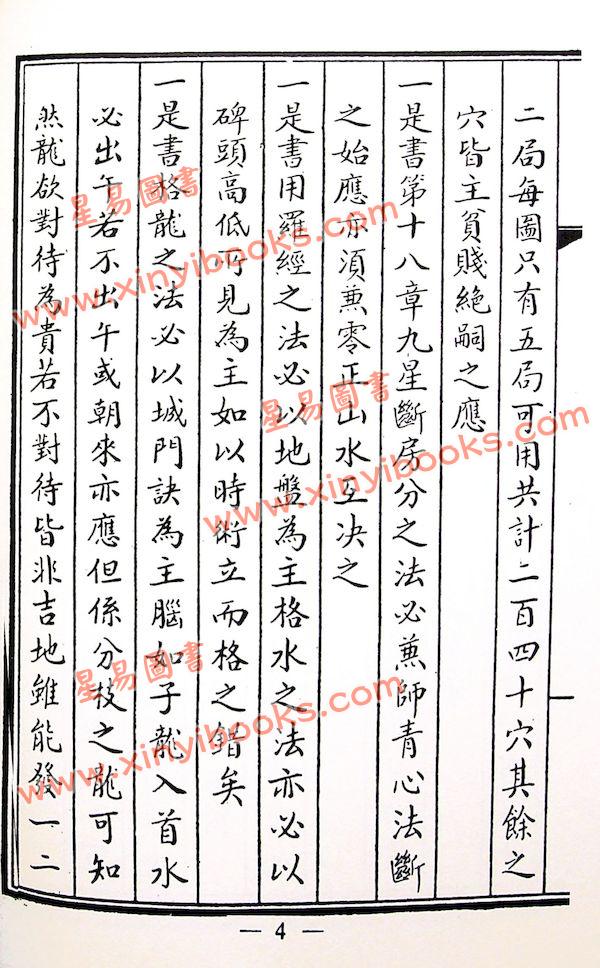 二局每圖只有五局可用共計二百四十穴其餘之
穴皆主貧賤絕嗣之應
一是書第十八章九星斷房分之法必兼師青心法斷
之始應亦須兼零正山水互决之
一是書用羅經之法必以地盤為主格水之法亦必以
碑頭高低所見為主如以時術立而格之錯矣
一是書格龍之法必以城門訣為主腦如子龍入首水
必出午若不出午或朝來亦應但係分枝之龍可知
然龍欲對待為貴若不對待皆非吉地雖能發一二
— 4 —
星易圖書
www.xinyibooks.com
星易圖書
www.xinyibooks.com
星易圖書
www.xinyibooks.com